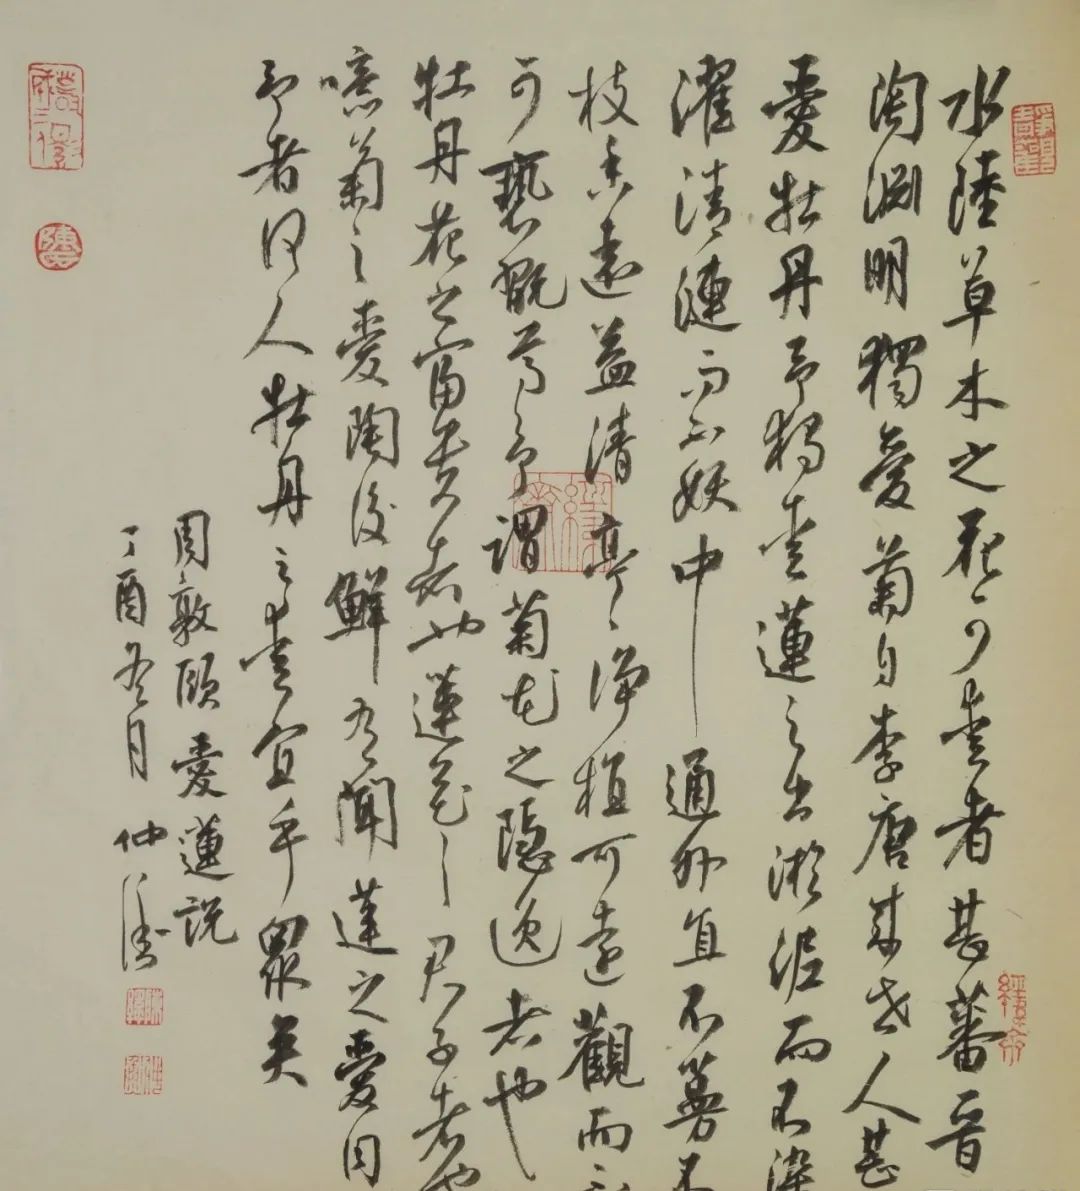 水陸草木之花可愛者甚蕃晋
陶淵明獨愛菊自李唐来世人甚
愛牡丹予獨愛蓮之出淤泥而不染
濯清漣而不妖中通外直不蔓不
枝香遠益清亭〻净植可遠觀而不
可褻翫焉予謂菊花之隱逸者也
牡丹花之富貴者也蓮花之君子者也
噫菊之愛陶後鮮有聞蓮之愛同
予者何人牡丹之愛宜乎眾矣
周敦頤愛蓮説
丁酉冬月仲